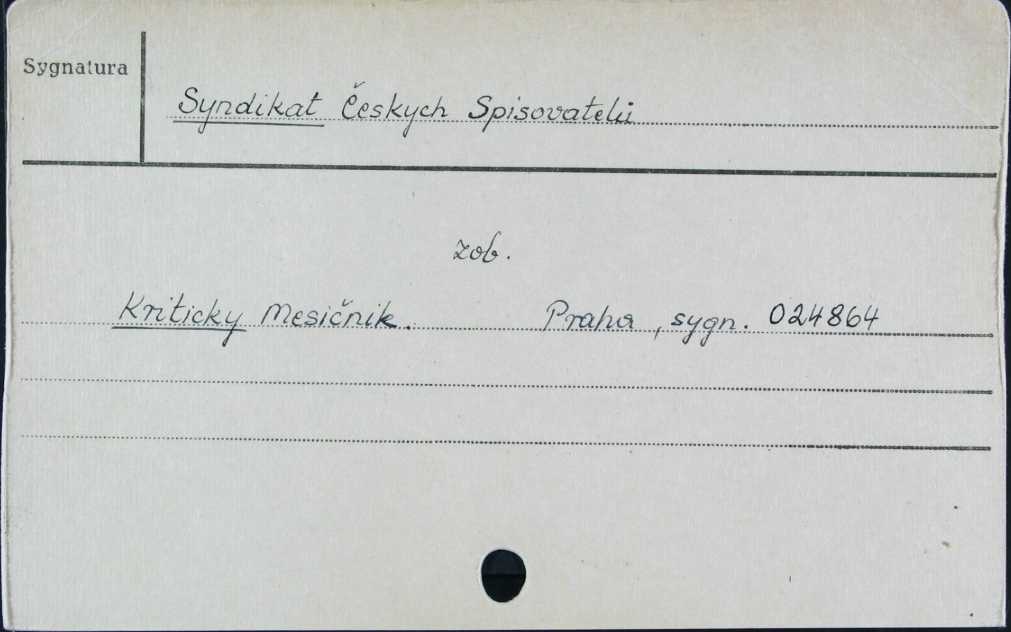 Sygnatura
Syndikat Českych Spisovatelů
zob.
Kriticky Mesičnik. Praha, sygn. 024864